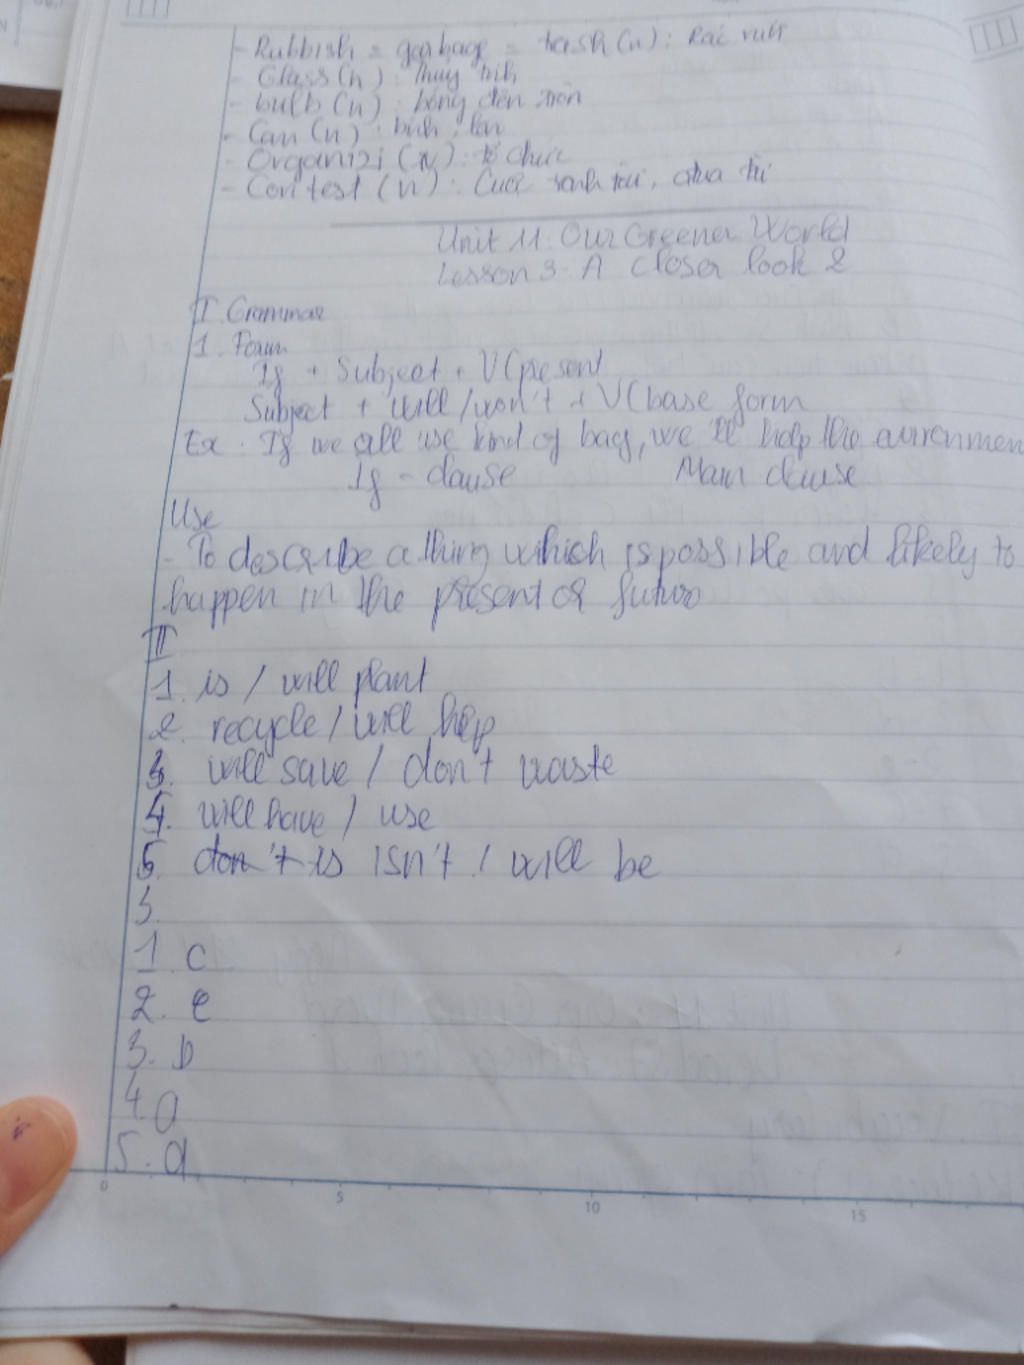 - Rubbish = garbage = trash (n) : Rác rưởi
- Glass (n) : Thủy tinh
- bulb (n) : bóng đèn tròn
- Can (n) : bình, lon
- Organizi (v) : tổ chức
- Contest (n) : Cuộc tranh tài, đua tài
Unit 11: Our Greener World
Lesson 3: A Closer look 2
I. Grammar
1. Form
If + Subject + V(present
Subject + will / won't + V(base form
Ex : If we all use kind of bag, we'll help the
If - clause Main clause
Use
- To describe a thing which is possible and likely to
happen in the present or future
II
1. is / will plant
2. recycle / will help
3. will save / don't waste
4. will have / use
5. don't is isn't / will be
3.
1. c
2. e
3. b
4. a
5. d
0 5 10 15